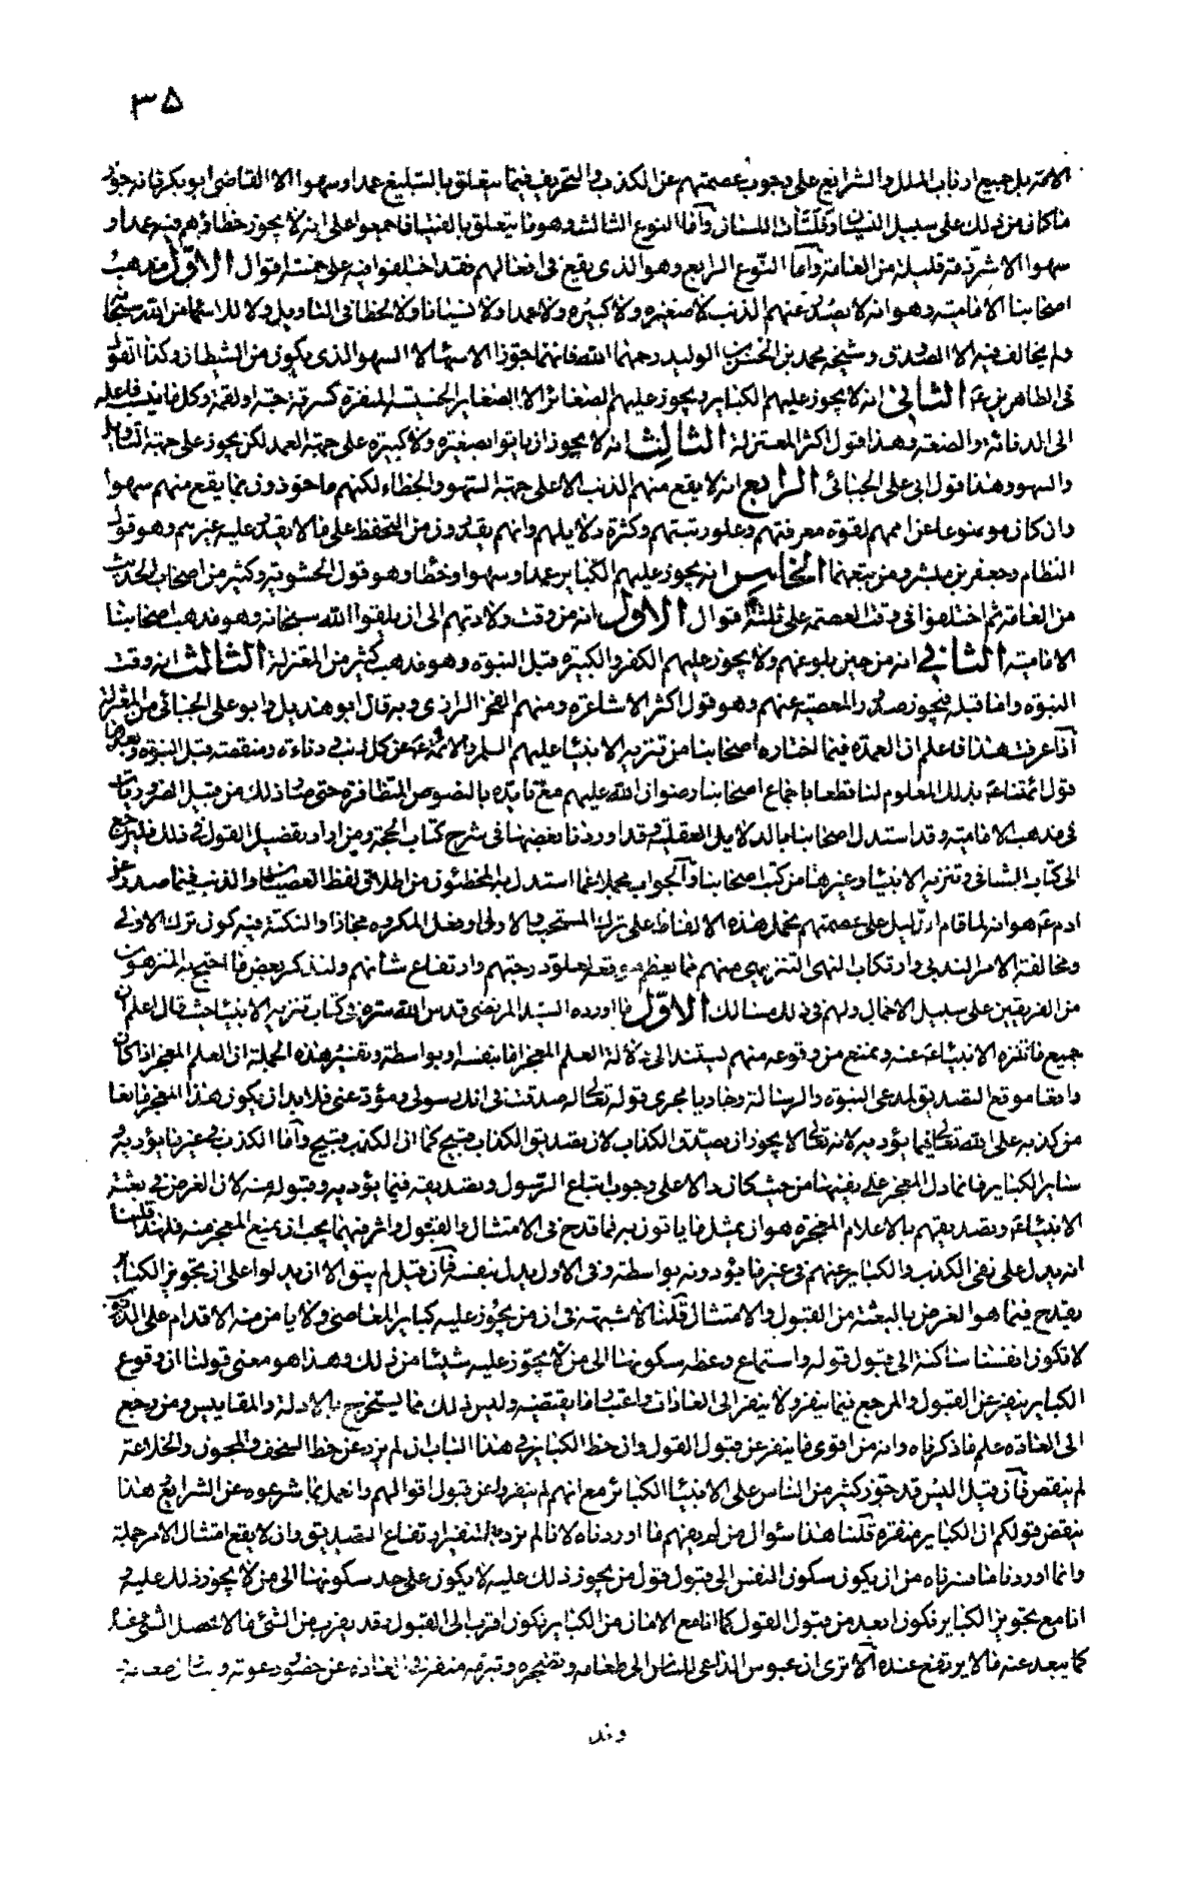 ۳۵
الامة بل جميع ارباب الملل والشرايع على وجوب عصمتهم عن الكذب والتحريف فيما يتعلق بالتبليغ عمدا وسهوا الا القاضي ابو بكر فانه جوز
ما كان من ذلك على سبيل النسيان وفلتات اللسان واما النوع الثالث وهو ما يتعلق بالفتيا فاجمعوا على انه لا يجوز خطاؤهم فيه عمدا و
سهوا الا شرذمة قليلة من العامة واما النوع الرابع وهو الذي يقع في افعالهم فقد اختلفوا فيه على خمسة اقوال الاول مذهب
اصحابنا الامامية وهو انه لا يصدر عنهم الذنب لا صغيره ولا كبيره ولا عمدا ولا نسيانا ولا لخطاء في التاويل ولا للاسهاء من الله سبحانه
ولم يخالف فيه الا الصدوق وشيخه محمد بن الحسن بن الوليد رحمهما الله فانهما جوزا الاسهاء لا السهو الذي يكون من الشيطان وكذا القول
في الطاهرين ع الثاني انه لا يجوز عليهم الكبائر ويجوز عليهم الصغائر الا الصغاير الخسيسة المنفرة كسرقة حبة او لقمة وكل ما ينسب فاعله
الى الدناءة والضعة وهذا قول اكثر المعتزلة الثالث انه لا يجوز ان ياتوا بصغيرة ولا كبيرة على جهة العمد لكن يجوز على جهة التاويل
والسهو وهذا قول ابي على الجبائي الرابع انه لا يقع منهم الذنب الا على جهة السهو والخطاء لكنهم ماخوذون بما يقع منهم سهوا
وان كان موضوعا عن اممهم لقوة معرفتهم وعلو رتبتهم وكثرة دلايلهم وانهم يقدرون من التحفظ على ما لا يقدر عليه غيرهم وهو قول
النظام وجعفر بن مبشر ومن تبعهما الخامس انه يجوز عليهم الكبائر عمدا وسهوا وخطأ وهو قول الحشوية وكثير من اصحاب الحديث
من العامة ثم اختلفوا في وقت العصمة على ثلثة اقوال الاول انه من وقت ولادتهم الى ان يلقوا الله سبحانه وهو مذهب اصحابنا
الامامية الثاني انه من حين بلوغهم ولا يجوز عليهم الكفر والكبيرة قبل النبوة وهو مذهب كثير من المعتزلة الثالث انه وقت
النبوة واما قبله فيجوز صدور المعصية عنهم وهو قول اكثر الاشاعرة ومنهم الفخر الرازي وبه قال ابو هذيل وابو على الجبائي من المعتزلة
اذا عرفت هذا فاعلم ان العمدة فيما اختاره اصحابنا من تنزيه الانبياء عليهم السلم والائمة ع عن كل ذنب ودناءة ومنقصة قبل النبوة وبعدها
قول ائمتنا ع بذلك المعلوم لنا قطعا باجماع اصحابنا رضوان الله عليهم مع تايده بالنصوص المتظافرة حتى صار ذلك من قبيل الضروريات
في مذهب الامامية وقد استدل اصحابنا بالدلايل العقلية وقد اوردنا بعضها في شرح كتاب الحجة ومن اراد تفصيل القول في ذلك فليرجع
الى كتاب الشافي وتنزيه الانبياء وغيرهما من كتب اصحابنا والجواب مجملا عما استدل به المخطئون من اطلاق لفظ العصيان والذنب فيما صدر عن
ادم ع هو انه لما قام الدليل على عصمتهم نحمل هذه الالفاظ على ترك المستحب والاولى او فعل المكروه مجازا والنكتة فيه كون ترك الاولى
ومخالفة الامر الندبي وارتكاب النهى التنزيهي منهم مما يعظم موقعه لعلو درجتهم وارتفاع شانهم ولنذكر بعض ما احتج به المنزهون
من الفريقين على سبيل الاجمال ولهم في ذلك مسالك الاول ما اورده السيد المرتضى قدس الله سره في كتاب تنزيه الانبياء حيث قال اعلم ان
جميع ما ننزه الانبياء ع عنه ونمنع من وقوعه منهم يستند الى دلالة العلم المعجز اما بنفسه او بواسطة وتفسير هذه الجملة ان العلم المعجز اذا كان
واقعا موقع التصديق لمدعى النبوة والرسالة وجاريا مجرى قوله تعالى له صدقت في انك رسولى ومؤد عنى فلا بد ان يكون هذا المعجز مانعا
من كذبه على الله تعالى فيما يؤديه لانه تعالى لا يجوز ان يصدق الكذاب لان تصديق الكذاب قبيح كما ان الكذب قبيح واما الكذب في غير ما يؤديه و
سائر الكبائر فانما دل المعجز على نفيها من حيث كان دالا على وجوب اتباع الرسول وتصديقه فيما يؤديه وقبوله منه لان الغرض في بعثة
الانبياء ع وتصديقهم بالاعلام المعجزة هو ان يمتثل ما ياتون به فما قدح في الامتثال والقبول واثر فيهما يجب ان يمنع المعجز منه فلهذا قلنا
انه يدل على نفى الكذب والكبائر عنهم في غير ما يؤدونه بواسطة وفي الاول يدل بنفسه فان قيل لم يبق الا ان يدلوا على ان تجويز الكبائر
يقدح فيما هو الغرض بالبعثة من القبول والامتثال قلنا لا شبهة في ان من يجوز عليه كبائر المعاصى ولا يامن منه الاقدام على الذنوب
لا تكون انفسنا ساكنة الى قبول قوله واستماع وعظه سكونها الى من لا يجوز عليه شيئا من ذلك وهذا هو معنى قولنا ان وقوع
الكبائر ينفر عن القبول والمرجع فيما ينفر ولا ينفر الى العادات واعتبار ما يقتضيه وليس ذلك مما يستخرج بالادلة والمقاييس ومن رجع
الى العادة علم ما ذكرناه وانه من اقوى ما ينفر عن قبول القول وان حظ الكبائر في هذا الباب ان لم يزد عن حظ السخف والمجون والخلاعة
لم ينقص فان قيل اليس قد جوز كثير من الناس على الانبياء الكبائر مع انهم لم ينفروا عن قبول اقوالهم والعمل بما شرعوه عن الشرايع هذا
ينقض قولكم ان الكبائر منفرة قلنا هذا سؤال من لم يفهم ما اوردناه لانا لم نرد بالتنفير ارتفاع التصديق وان لا يقع امتثال الامر جملة
وانما اردنا ما فسرناه من ان يكون سكون النفس الى قبول قول من يجوز ذلك عليه لا يكون على حد سكونها الى من لا يجوز ذلك عليه و
انا مع تجويز الكبائر نكون ابعد من قبول القول كما انا مع الامان من الكبائر نكون اقرب الى القبول وقد يقرب من الشئ ما لا يحصل الشئ عنده
كما يبعد عنه ما لا يرتفع عنده الا ترى ان عبوس الداعى للناس الى طعامه وتضجره وتبرمه منفر في العادة عن حضور دعوته و
وقد